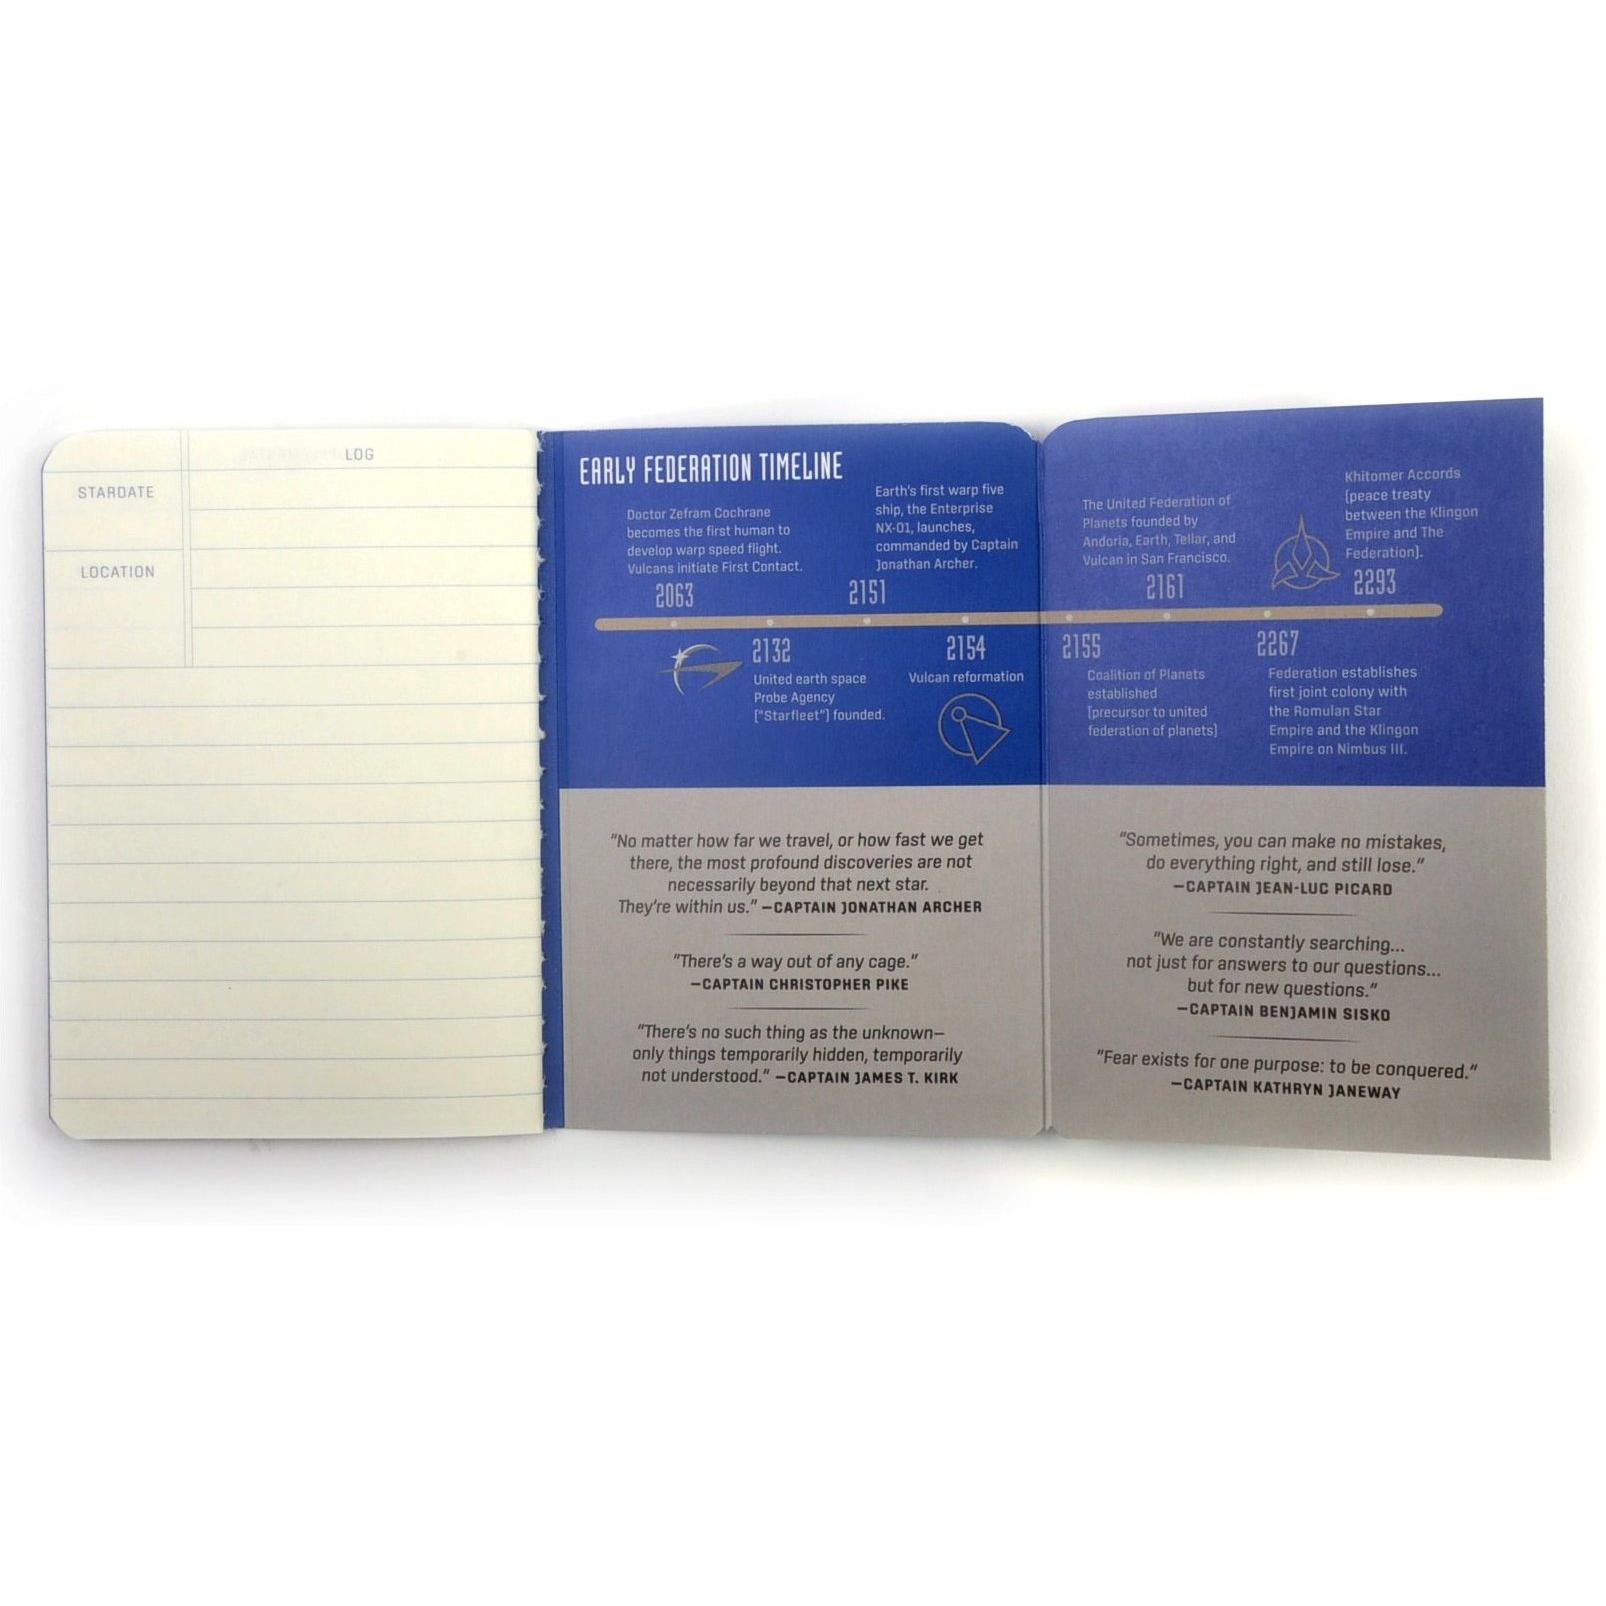 LOG
STARDATE
LOCATION
EARLY FEDERATION TIMELINE
Doctor Zefram Cochrane
becomes the first human to
develop warp speed flight.
Vulcans initiate First Contact.
2063
2132
United earth space
Probe Agency
["Starfleet"] founded.
Earth's first warp five
ship, the Enterprise
NX-01, launches,
commanded by Captain
Jonathan Archer.
2151
2154
Vulcan reformation
2155
Coalition of Planets
established
[precursor to united
federation of planets]
The United Federation of
Planets founded by
Andoria, Earth, Tellar, and
Vulcan in San Francisco.
2161
2267
Federation establishes
first joint colony with
the Romulan Star
Empire and the Klingon
Empire on Nimbus III.
Khitomer Accords
[peace treaty
between the Klingon
Empire and The
Federation].
2293
"No matter how far we travel, or how fast we get
there, the most profound discoveries are not
necessarily beyond that next star.
They're within us." —CAPTAIN JONATHAN ARCHER
"There's a way out of any cage."
—CAPTAIN CHRISTOPHER PIKE
"There's no such thing as the unknown—
only things temporarily hidden, temporarily
not understood." —CAPTAIN JAMES T. KIRK
"Sometimes, you can make no mistakes,
do everything right, and still lose."
—CAPTAIN JEAN-LUC PICARD
"We are constantly searching...
not just for answers to our questions...
but for new questions."
—CAPTAIN BENJAMIN SISKO
"Fear exists for one purpose: to be conquered."
—CAPTAIN KATHRYN JANEWAY